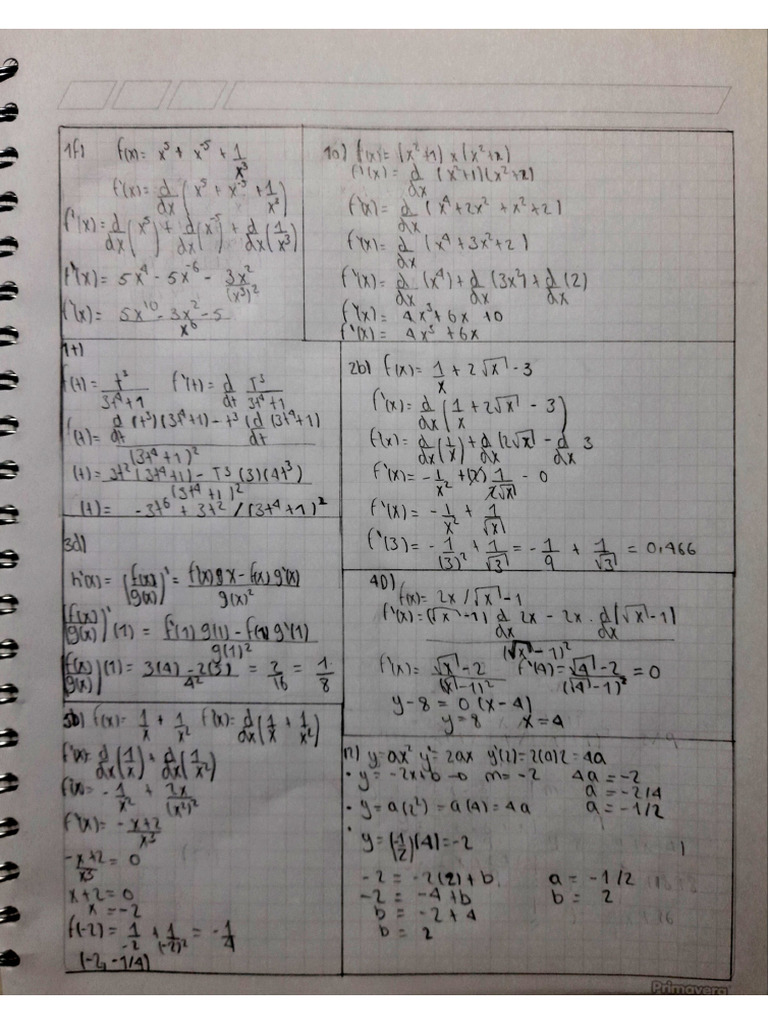 1f) f(x) = x⁵ + x⁻⁵ + 1/x³
f'(x) = d/dx (x⁵ + x⁻⁵ + 1/x³)
f'(x) = d/dx (x⁵) + d/dx (x⁻⁵) + d/dx (1/x³)
f'(x) = 5x⁴ - 5x⁻⁶ - 3x²/(x³)²
f'(x) = 5x¹⁰ - 3x² - 5/x⁶
1o) f(x) = (x²+1) x (x²+2)
f'(x) = d/dx (x²+1)(x²+2)
f'(x) = d/dx (x⁴ + 2x² + x² + 2)
f'(x) = d/dx (x⁴ + 3x² + 2)
f'(x) = d/dx (x⁴) + d/dx (3x²) + d/dx (2)
f'(x) = 4x³ + 6x + 0
f'(x) = 4x³ + 6x
1t)
f(t) = t³/3t⁴+1 f'(t) = d/dt T³/3t⁴+1
f'(t) = d/dt (t³)(3t⁴+1) - t³ (d/dt (3t⁴+1)/(3t⁴+1)²
(t) = 3t² (3t⁴+1) - T³ (3)(4t³)/(3t⁴+1)²
(t) = -3t⁶ + 3t² / (3t⁴+1)²
2b) f(x) = 1/x + 2√x - 3
f'(x) = d/dx (1/x + 2√x - 3)
f(x) = d/dx (1/x) + d/dx (2√x - d/dx 3
f'(x) = -1/x² + (2) 1/2√x - 0
f'(x) = -1/x² + 1/√x
f'(3) = -1/(3)² + 1/√3 = -1/9 + 1/√3 = 0,466
3d)
h'(x) = (f(x)/g(x))' = f'(x) g x - f(x) g'(x)/g(x)²
(f(x)/g(x))' (1) = f'(1) g(1) - f(1) g'(1)/g(1)²
(f(x)/g(x)) (1) = 3(4) - 2(5)/4² = 2/16 = 1/8
4D)
f(x) = 2x/√x - 1
f'(x) = (√x - 1) d/dx 2x - 2x · d/dx (√x - 1)/(√x - 1)²
f'(x) = √x - 2/(√x - 1)² f'(4) = √4 - 2/(√4 - 1)² = 0
y - 8 = 0 (x - 4)
y = 8 x = 4
5b) f(x) = 1/x + 1/x² f'(x) = d/dx (1/x + 1/x²)
f'(x) = d/dx (1/x) + d/dx (1/x²)
f'(x) = -1/x² + 2x/(x²)²
f'(x) = -x+2/x³
-x+2/x³ = 0
x+2 = 0
x = -2
f(-2) = 1/-2 + 1/(-2)² = -1/4
(-2, -1/4)
y = ax² y' = 2ax y'(2) = 2(a)2 = 4a
• y = -2x+b → m = -2 4a = -2
a = -2/4
• y = a(2²) = a(4) = 4a a = -1/2
• y = (-1/2)(4) = -2
-2 = -2(2) + b a = -1/2
-2 = -4 + b b = 2
b = -2 + 4
b = 2
Primavera